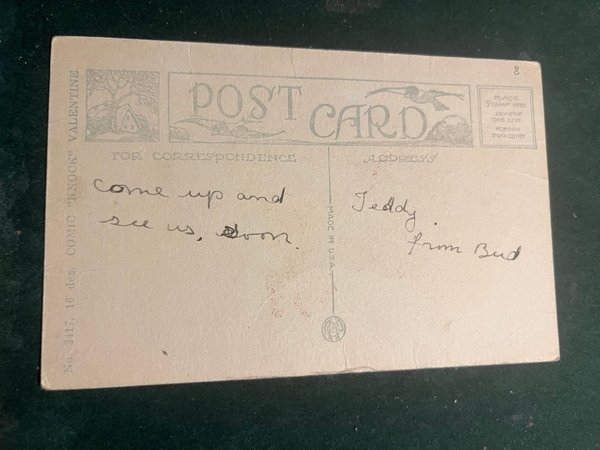 8
No. 2417, 16 des. COMIC "KNOCK" VALENTINE
POST CARD
PLACE
STAMP HERE
DOMESTIC
ONE CENT
FOREIGN
TWO CENTS
FOR CORRESPONDENCE
ADDRESS
Come up and
see us, soon.
MADE IN U.S.A.
Teddy.
from Bud